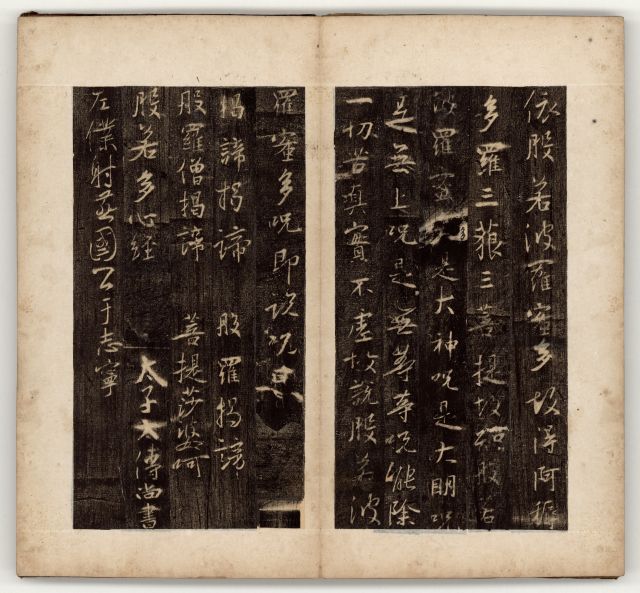 依般若波羅蜜多故得阿耨
多羅三藐三菩提故知般若
波羅蜜多是大神呪是大明呪
是無上呪是無等等呪能除
一切苦真實不虛故說般若波
羅蜜多呪即說呪曰
揭諦揭諦 般羅揭諦
般羅僧揭諦 菩提莎婆呵
般若多心經 太子太傅尚書
左僕射燕國公于志寧